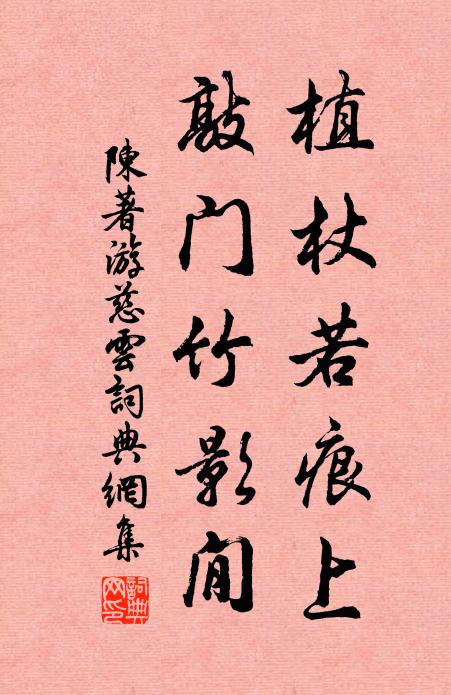 植杖若痕上
敲门竹影间
陳著游慈雲詞典網集
詞典网印